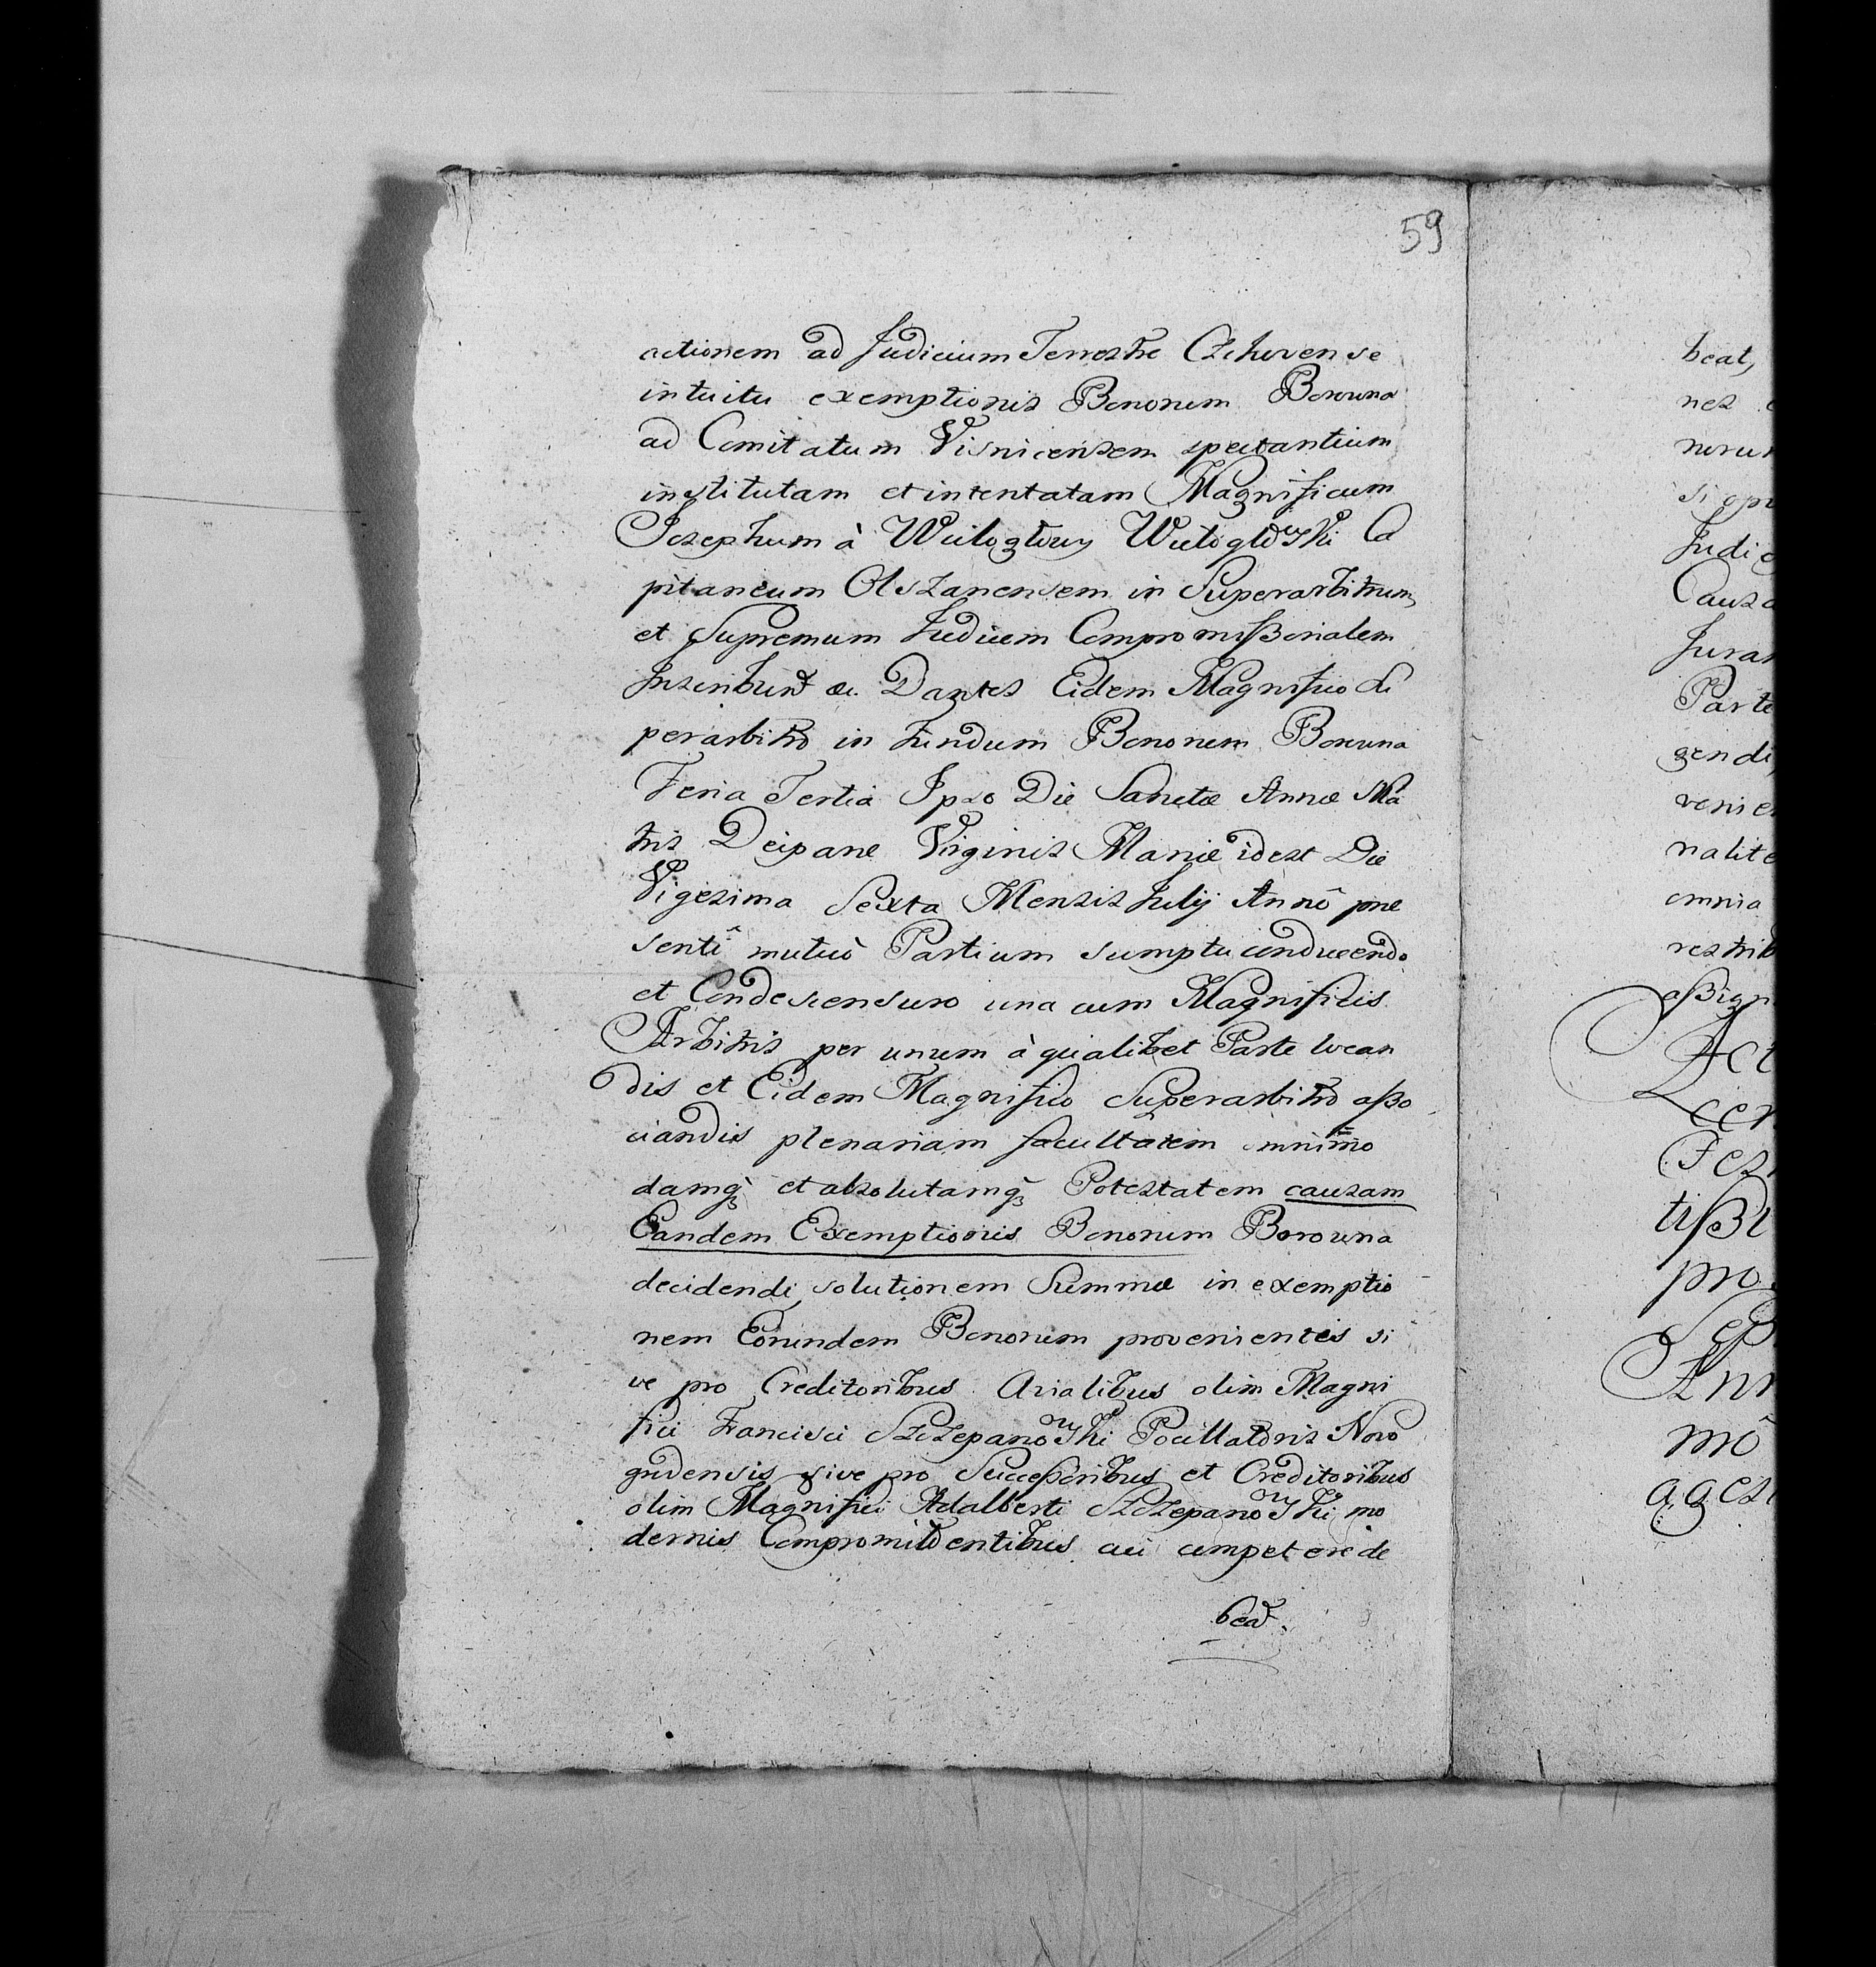 59
actionem ad Judicium Terrestre Czchovense
intuitu exemptionis Bonorum Borowna
ad Comitatum Visnicensem spectantium
institutam et intentatam Magnificum
Josephum à Wielogłowy Wielogłowski Ca
pitaneum Olszanensem in Superarbitrum
et Supremum Judicem Compromissorialem
Inscribunt &c. Dantes Eidem Magnifico Su
perarbitro in fundum Bonorum Borowna
Feria Tertia Ipso Die Sanctæ Annæ Ma
tris Deiparæ Virginis Mariæ idest Die
Vigesima Sexta Mensis Julij Annô præ
sentî mutuô Partium sumptu conducendo
et Condescensuro una cum Magnificis
Arbitris per unum à qualibet Parte locan
dis et Eidem Magnifico Superarbitro asso
ciandis plenariam facultatem omnimo
damq3 et absolutamq3 Potestatem causam
Eandem Exemptionis Bonorum Borowna
decidendi, solutionem Summæ in exemptio
nem Eorundem Bonorum provenientis si
ve pro Creditoribus Avialibus olim Magni
fici Francisci Szczepanowski Pocillatoris Novo
grudensis sive pro Successoribus et Creditoribus
olim Magnifici Adalberti Szczepanowski mo
dernis Compromittentibus cui competere de
beat.
beat,
Judi
Causa
Juran
Parte
gendi,
venien
nalite
omnia
restrib
assign
Act
tissi
pro
Ann
mô